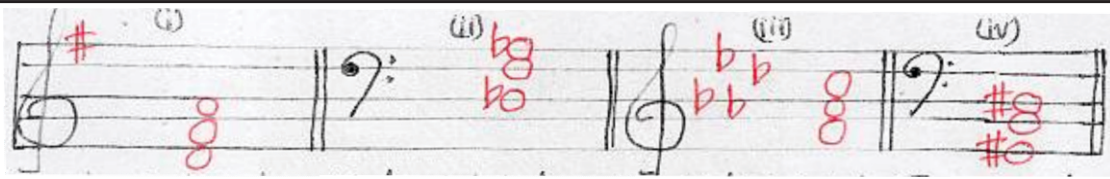 (i) (ii) (iii) (iv)